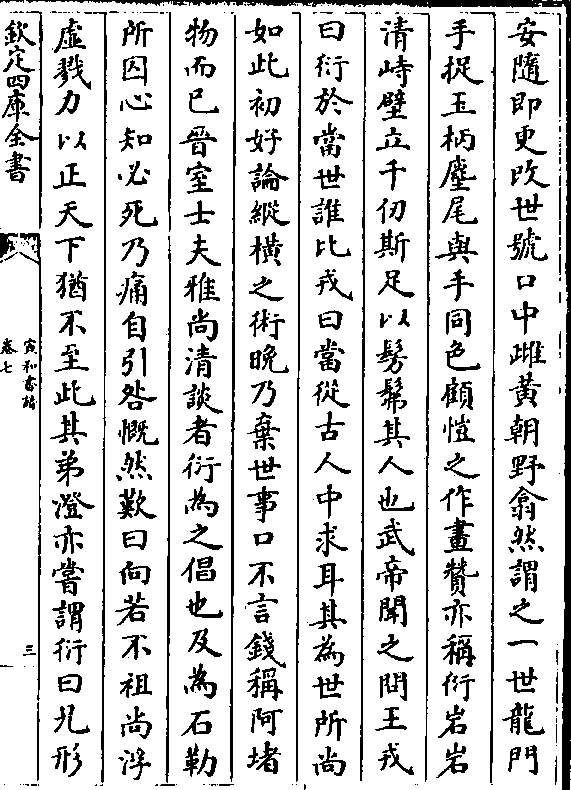 安隨即更改世號口中雌黃朝野翕然謂之一世龍門
手捉玉柄麈尾與手同色顧愷之作畫贊亦稱衍岩岩
清峙壁立千仞斯足以髣髴其人也武帝聞之問王戎
曰衍於當世誰比戎曰當從古人中求耳其為世所尚
如此初好論縱橫之術晩乃棄世事口不言錢稱阿堵
物而已晉室士夫雅尚清談者衍為之倡也及為石勒
所囚心知必死乃痛自引咎慨然歎曰向若不祖尚浮
虛戮力以正天下猶不至此其弟澄亦嘗謂衍曰兄形
欽定四庫全書
宣和書譜
卷七
三